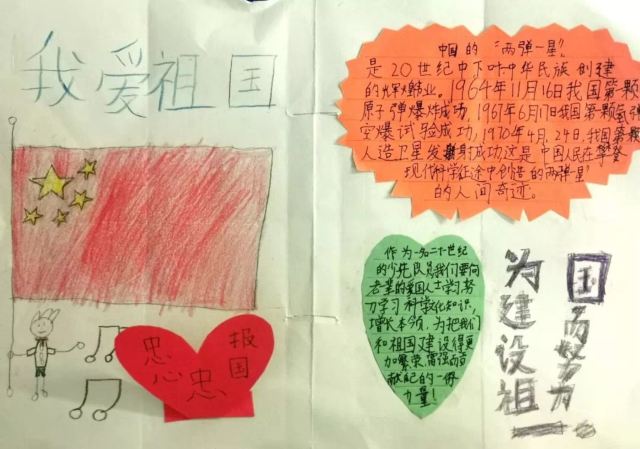 我爱祖国
中国的“两弹一星”
是20世纪中下叶中华民族创建
的光辉伟业。1964年11月16日我国第一颗
原子弹爆炸成功,1967年6月17日我国第一颗氢弹
空爆试验成功,1970年4月24日,我国第一颗
人造卫星发射成功这是中国人民在攀登
现代科学征途中创造的“两弹一星”
的人间奇迹。
报国
忠心忠
作为一名二十一世纪
的少先队员我们要向
老辈的爱国人士学习努
力学习科学文化知识,
增长本领,为把我们
和祖国建设得更
加繁荣富强而贡
献自己的一份
力量!
为建设祖
国而努力